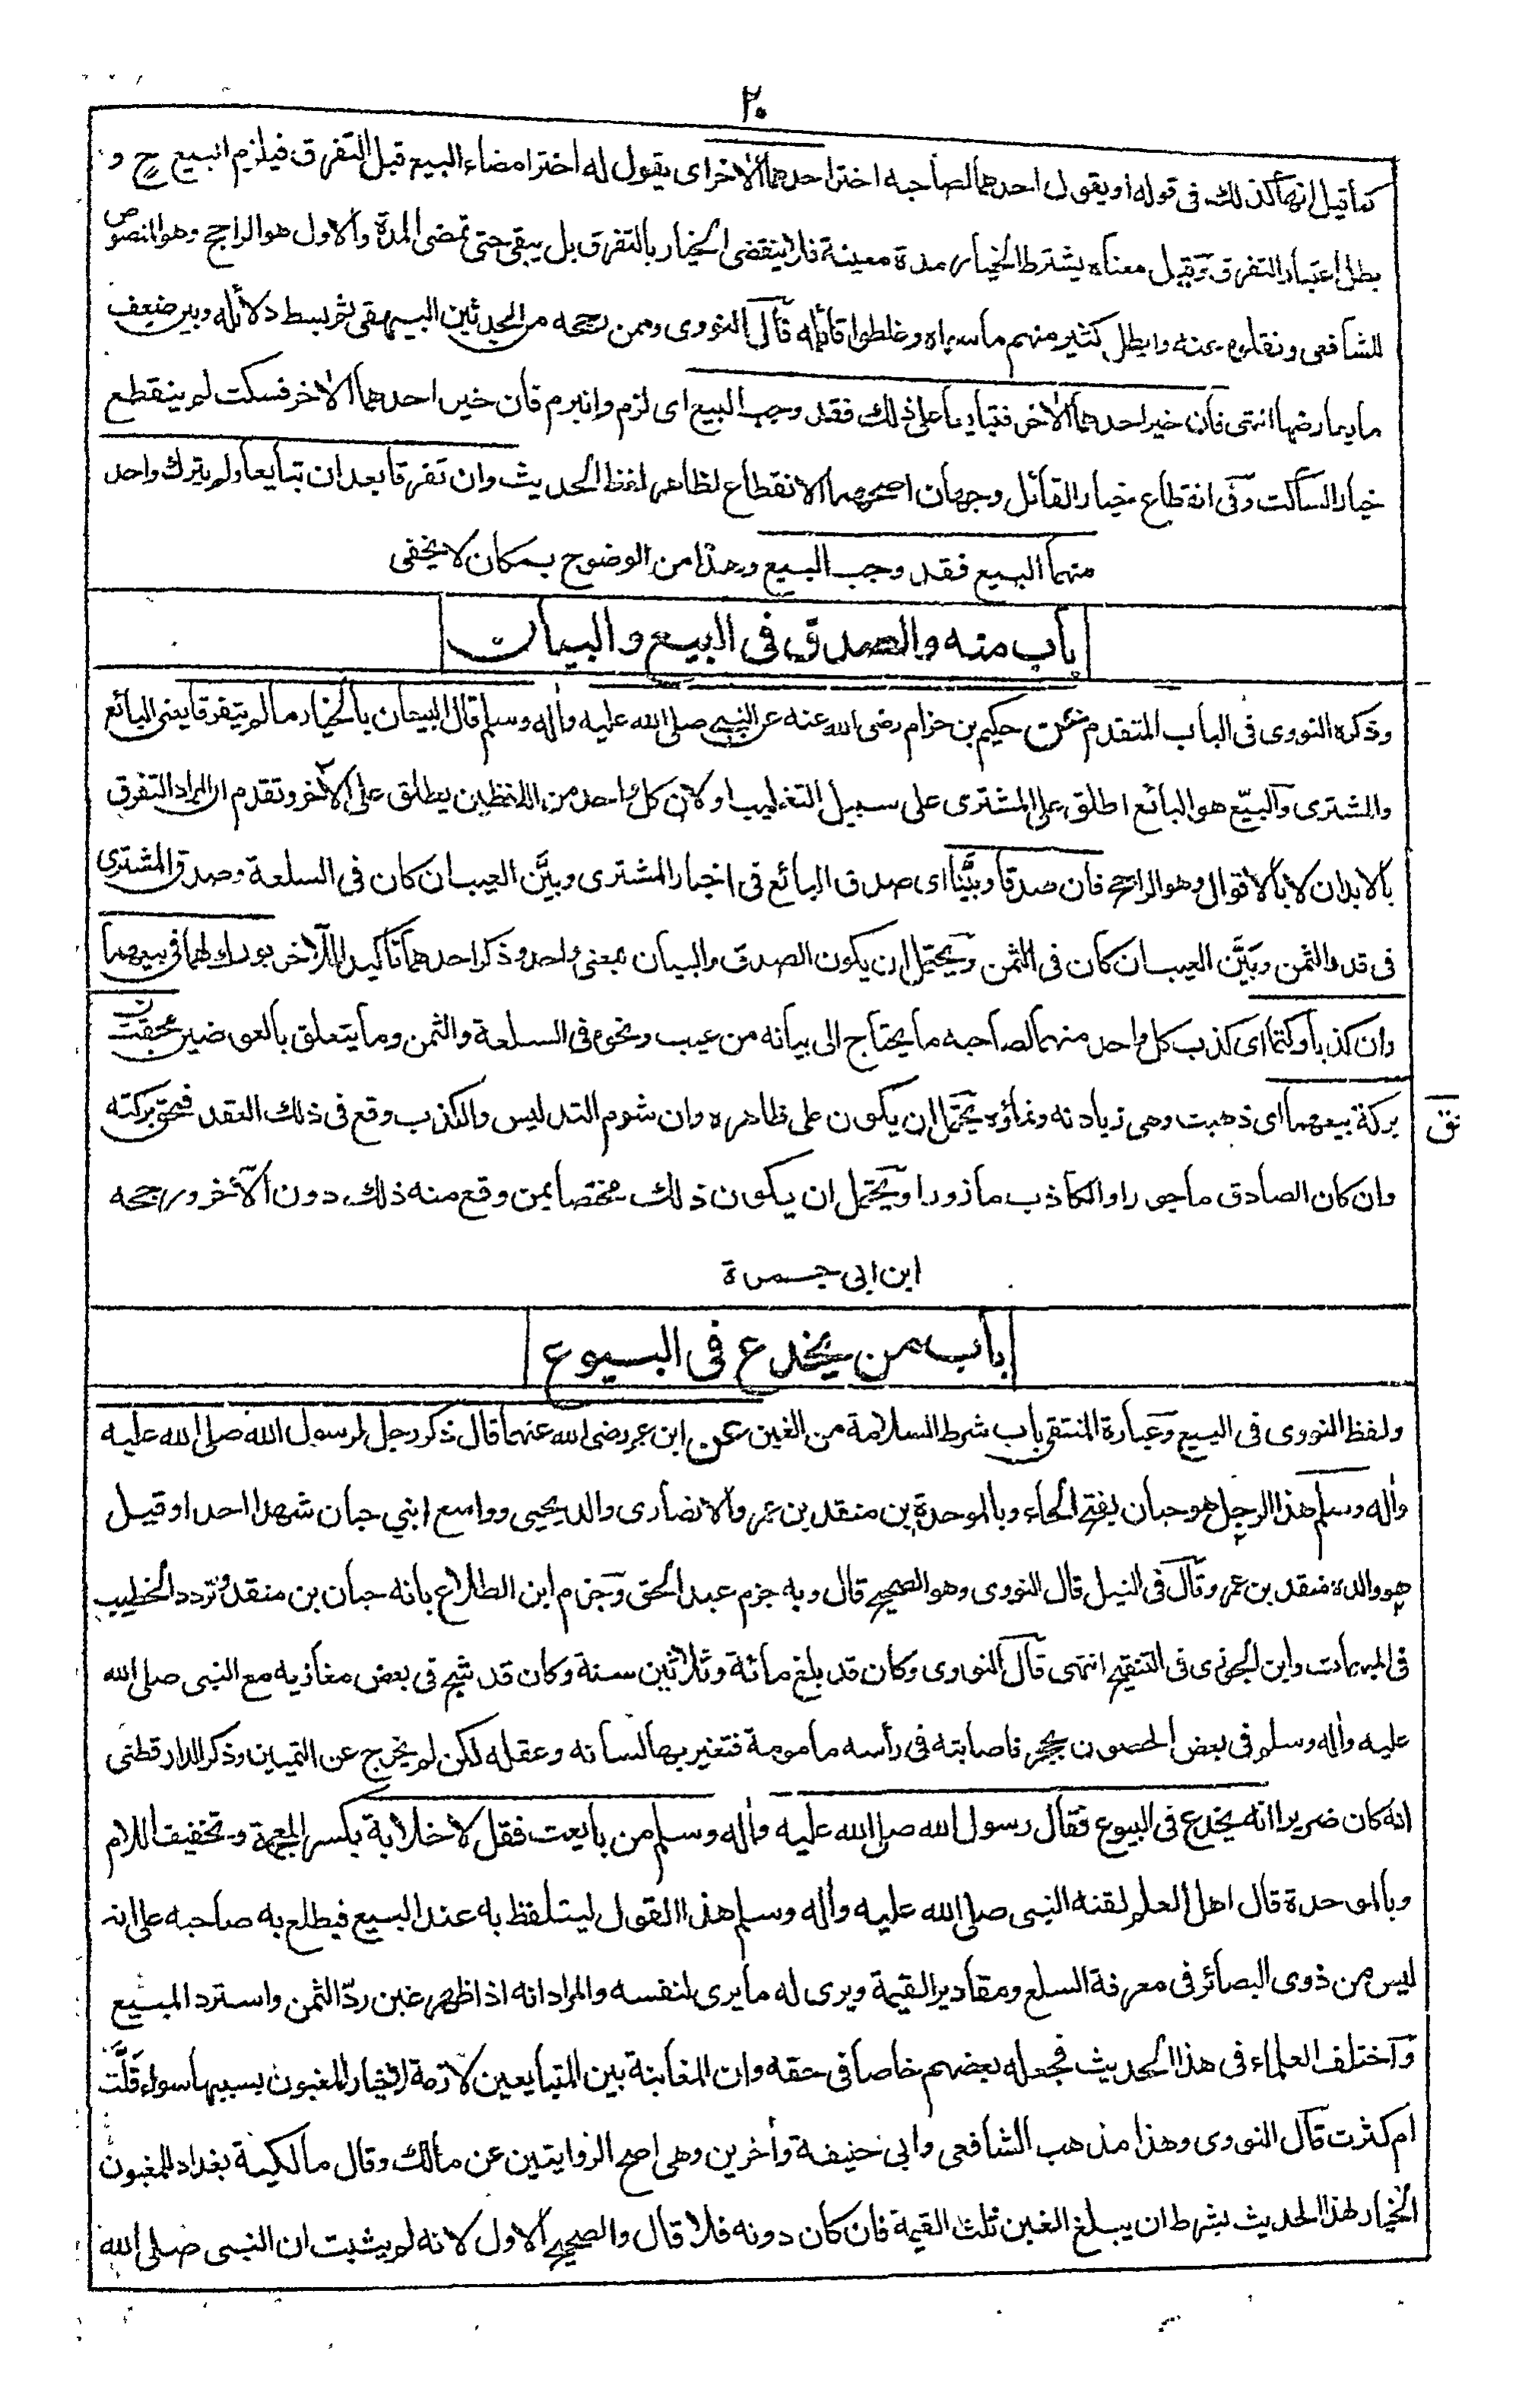 ٢٠
كما قيل انها كذلك فى قوله او يقول احدهما لصاحبه اختر احدهما الاخر اى يقول له اختر امضاء البيع قبل التفرق فيلزم البيع ح و
بطل اعتبار التفرق وقيل معناه يشترط الخيار مدة معينة فلا ينقضى الخيار بالتفرق بل يبقى حتى تمضى المدة والاول هو الراجح وهو المنصوص
للشافعى ونقلوه عنه وابطل كثير منهم ما سواه وغلطوا قائله قال النووى وممن رجحه من المحدثين البيهقى ثم بسط دلائله وبين ضعف
ما يعارضها انتهى فان خير احدهما الاخر فتبايعا على ذلك فقد وجب البيع اى لزم وانبرم فان خير احدهما الاخر فسكت لم ينقطع
خيار الساكت وفى انقطاع خيار القائل وجهان اصحهما الانقطاع لظاهر لفظ الحديث وان تفرقا بعد ان تبايعا ولم يترك واحد
منهما البيع فقد وجب البيع وهذا من الوضوح بمكان لا يخفى
باب منه والصدق فى البيع والبيان
وذكره النووى فى الباب المتقدم عن حكيم بن حزام رضى الله عنه عن النبى صلى الله عليه وأله وسلم قال البيعان بالخيار ما لم يتفرقا يعنى البائع
والمشترى والبيّع هو البائع اطلق على المشترى على سبيل التغليب او لان كل واحد من اللفظين يطلق على الأخر وتقدم ان المراد التفرق
بالابدان لا بالاقوال وهو الراجح فان صدقا وبيَّنا اى صدق البائع فى اخبار المشترى وبيَّن العيب ان كان فى السلعة وصدق المشترى
فى قدر الثمن وبَيَّن العيب ان كان فى الثمن ويحتمل ان يكون الصدق والبيان بمعنى واحد وذكر احدهما تاكيد للآخر بورك لهما فى بيعهما
وان كذبا وكتما اى كذب كل واحد منهما لصاحبه ما يحتاج الى بيانه من عيب ونحوه فى السلعة والثمن وما يتعلق بالعوضين محقت
بركة بيعهما اى ذهبت وهى زيادته ونماؤه يحتمل ان يكون على ظاهره وان شوم التدليس والكذب وقع فى ذلك العقد فمحق بركته
وان كان الصادق ماجورا والكاذب مأزورا ويحتمل ان يكون ذلك مختصا بمن وقع منه ذلك دون الآخر ورجحه
ابن ابى جمرة
باب من يخدع فى البيوع
ولفظ النووى فى البيع وعبارة المنتقى باب شرط السلامة من الغبن عن ابن عمر رضى الله عنهما قال ذكر رجل لرسول الله صلى الله عليه
وأله وسلم هذا الرجل هو حبان بفتح الحاء وبالموحدة بن منقذ بن عمرو الانصارى والد يحيى وواسع ابني حبان شهدا احدا وقيل
هو والده منقذ بن عمرو قال فى النيل قال النووى وهو الصحيح قال وبه جزم عبد الحق وجزم ابن الطلاع بانه حبان بن منقذ وتردد الخطيب
فى المبهمات وابن الجوزى فى التنقيح انتهى قال النووى وكان قد بلغ مائة وثلاثين سنة وكان قد شج فى بعض مغازيه مع النبى صلى الله
عليه وأله وسلم فى بعض الحصون بحجر فاصابته فى رأسه مامومة فتغير بها لسانه وعقله لكن لم يخرج عن التمييز وذكر الدارقطنى
انه كان ضريرا انه يخدع فى البيوع فقال رسول الله صلى الله عليه وأله وسلم من بايعت فقل لا خلابة بكسر المعجمة وتخفيف اللام
وبالموحدة قال اهل العلم لقنه النبى صلى الله عليه وأله وسلم هذا القول ليتلفظ به عند البيع فيطلع به صاحبه على انه
ليس من ذوى البصائر فى معرفة السلع ومقادير القيمة ويرى له ما يرى لنفسه والمراد انه اذا ظهر غبن ردّ الثمن واسترد المبيع
واختلف العلماء فى هذا الحديث فجعله بعضهم خاصا فى حقه وان المغابنة بين المتبايعين لازمة لا خيار للمغبون بسببها سواء قلَّت
ام كثرت قال النووى وهذا مذهب الشافعى وابى حنيفة وأخرين وهى اصح الروايتين عن مالك وقال مالكية بغداد للمغبون
الخيار لهذا الحديث بشرط ان يبلغ الغبن ثلث القيمة فان كان دونه فلا قال والصحيح الاول لانه لم يثبت ان النبى صلى الله